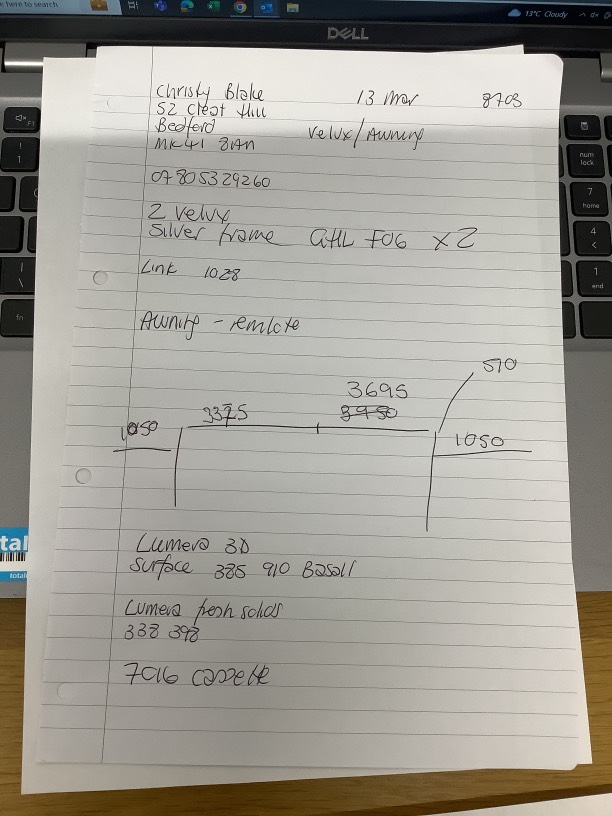 e here to search
13°C Cloudy
DELL
Christy Blake 13 Mar 8703
52 Crest Hill
Bedford Velux/Awning
MK41 8AN
07805329260
2 Velux
Silver frame GHL F06 x2
Link 1028
Awning - remlote
510
3695
3375 3950
1050 1050
Lumera 3D
Surface 385 910 Basalt
Lumera fresh solids
338 398
7016 cassette
tal
total
F1
!
1
|
\
fn
num
lock
7
home
4
<
1
end